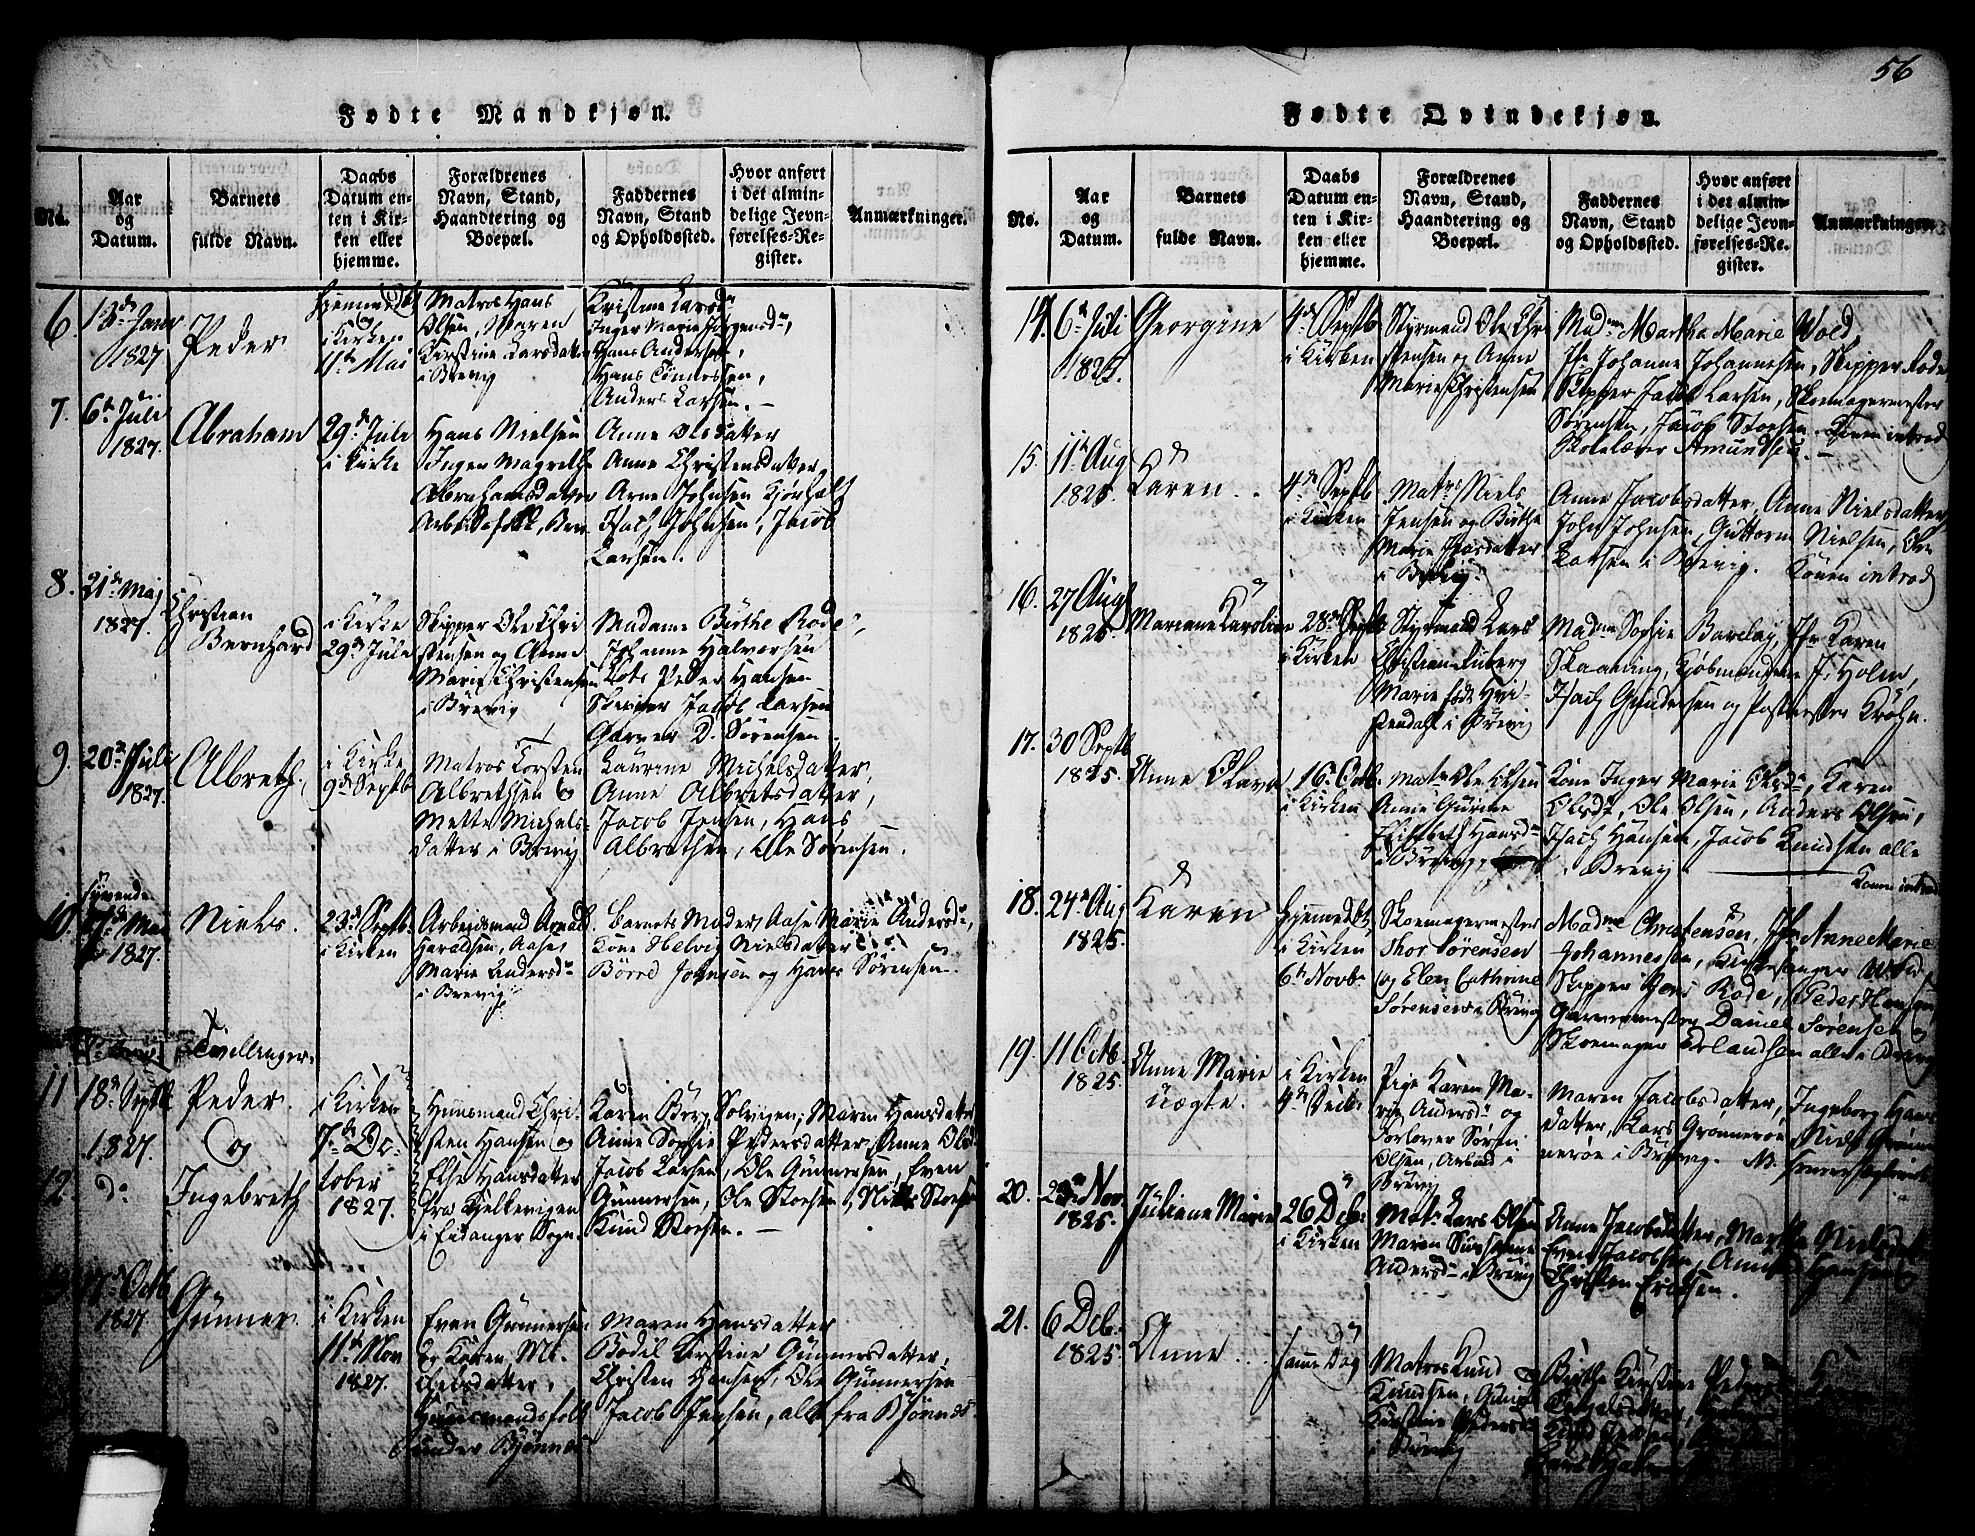 56
Fødte Mandkjøn.
No.
Aar og Datum.
Barnets fulde Navn.
Daabs Datum enten i Kirken eller hjemme.
Forældrenes Navn, Stand, Haandtering og Boepæl.
Faddernes Navn, Stand og Opholdssted.
Hvor anført i det almindelige Jevnførelses-Register.
Anmærkninger.
6. 13de Janv 1827
Peder
i Kirken
11te Mai
Matros Hans
Olsen, Maren
Kirstine Larsdatter
i Brevig
Kirstine Larsd
Inger Marie Jørgensd,
Hans Andersen,
Hans Tømessen,
Anders Larsen.
7. 6te Juli 1827.
Abraham
29de Julii
i Kirke
Hans Nielsen
Inger Magrethe
Abrahamsdatter
Arbeidsfolk, Brev
Anne Olsdatter
Anne Christensdatter
Arne Johnsen Kjønhalt
Isach Johnsen, Jacob
Larsen.
8. 21de Maj
1827.
Christian
Bernhard
i Kirke
29de Julii
Skipper Ole Chri
stensen og Anne
Marie Christensen
i Brevig
Madame Birthe Rode,
Johanne Halvorsen
Lots Peder Hansen
Skipper Jacob Larsen
Garver D. Sørensen.
9. 20de Juli
1827.
Albreth.
i Kirke
9de Septb
Matros Torsten
Albrethsen og
Mette Michels-
datter i Brevig
Laurine Michelsdatter,
Anne Albretsdatter,
Jacob Jensen, Hans
Albrethsen, Ole Sørensen.
10. syvende
Mai
1827.
Niels.
23de Septb.
i Kirken
Arbeidsmand
Haraldsen, Aase
Marie Andersd
i Brevig
Barnets Moder, Aase Marie Andersd,
Kone Helvig Nielsdatter
Børre Johnsen og Hans Sørensen.
Tvillinger.
11 18de Septb
1827.
Peder.
og
12 do
Ingebreth
i Kirken
7de Oc-
tober
1827.
Huusmand Chri-
sten Hansen og
Else Hansdatter
fra Kjelkevigen
i Eidanger Sogn.
Karen Børg, Solvigen, Maren Hansdatter
Anne Sophie Pedersdatter, Anne Ols
Jacob Larsen, Ole Gunnersen, Even
Gunnersen, Ole Stoesen, Niels Stoesen
Knud Stoesen.
Octb
1827
Gunner
i Kirken
11te Nov
1827.
Even Gunnersen
og Karen
Huusmandsfolk
under Bjønnes
Maren Hansdatter
Bodel Kirstine Gunnersdatter,
Christen Hansen, Ole Gunnersen
Jacob Jensen, alle fra Bjønnes.
Fødte Qvindekjøn.
No.
Aar og Datum.
Barnets fulde Navn.
Daabs Datum enten i Kirken eller hjemme.
Forældrenes Navn, Stand, Haandtering og Boepæl.
Faddernes Navn, Stand og Opholdssted.
Hvor anført i det almindelige Jevnførelses-Register.
Anmærkninger.
14. 6te Juli
1825.
Georgine
4de Septb
i Kirken
Styrmand Ole Chri
stensen og Anne
Marie Christensen
Madme Martha Marie Wold
Jfr Johanne Johannesen, Skipper Rode
Skipper Jacob Larsen, Skoemagermester
Sørensen, Jacob Stoesen. Konen introd
Skolelærer Amundsen.
15. 11te Aug
1825.
Karen
4de Septb
i Kirken
Matrs Niels
Jensen og Birthe
Marie
i Brevig.
Anne Jacobsdatter, Anne Nielsdatter
John Johnsen, Guttorm Nielsen, Ole
Larsen i Brevig. Konen introd
16. 27 Aug
1825.
Mariane Karoline
28de Septb
i Kirken
Styrmand Lars
Christian Ruberg
Marie født Hvi-
i Brevig
Madme Sophie Barclay, Jfr Karen
Skaaning, Kjøbmændene J. Holm,
Isach Gundersen og Postmester Krøhn.
17. 30 Septb
1825.
Anne Olava
16de Octb.
i Kirken
Matrs Ole Olsen
Anne Gurine
Elisabeth Hansd
i Brevig
Kone Inger Marie Olsd, Karen
Olsd, Ole Olsen, Anders Olsen,
Isach Hansen, Jacob Knudsen alle
i Brevig
Konen introd
18. 24de Aug
1825.
Karen
Hjemmedbt,
i Kirken
6te Novb.
Skoemagermester
Thor Sørensen
og Elen Cathrine
Sørensen i Brevig
Madme Christensen, Jfr Anne Marie
Johannessen, Kirkesanger Wold,
Skipper Jens Rode, Peder Hansen
Garvermester Daniel Sørensen og
Skoemager Erlandsen alle i Brevig
19. 11 Octb.
1825.
Anne Marie
uægte.
i Kirken
4de Decb.
Pige Karen Ma-
rie Andersd og
Forlover Søren
Olsen, Arbmd i
Brevig
Maren Jacobsdatter, Ingeborg Hans
datter, Lars Grønnerøe, Niels Grøn-
nerøe i Brevig.
20. Nov.
1825.
Juliane Marie
26 Deb.
i Kirken
Matrs Lars Olsen
Maren
Andersd i Brevig
Anne Jacobsdatter, Martha Nielsdat
Even Jacobsen, Hansen
Christen Ericksen.
21. 6 Deb.
1825.
Anne
samme Dag
Matros Knud
Knudsen,
Kirstine Pedersd
i Brevig
Birthe Kirstine Peders